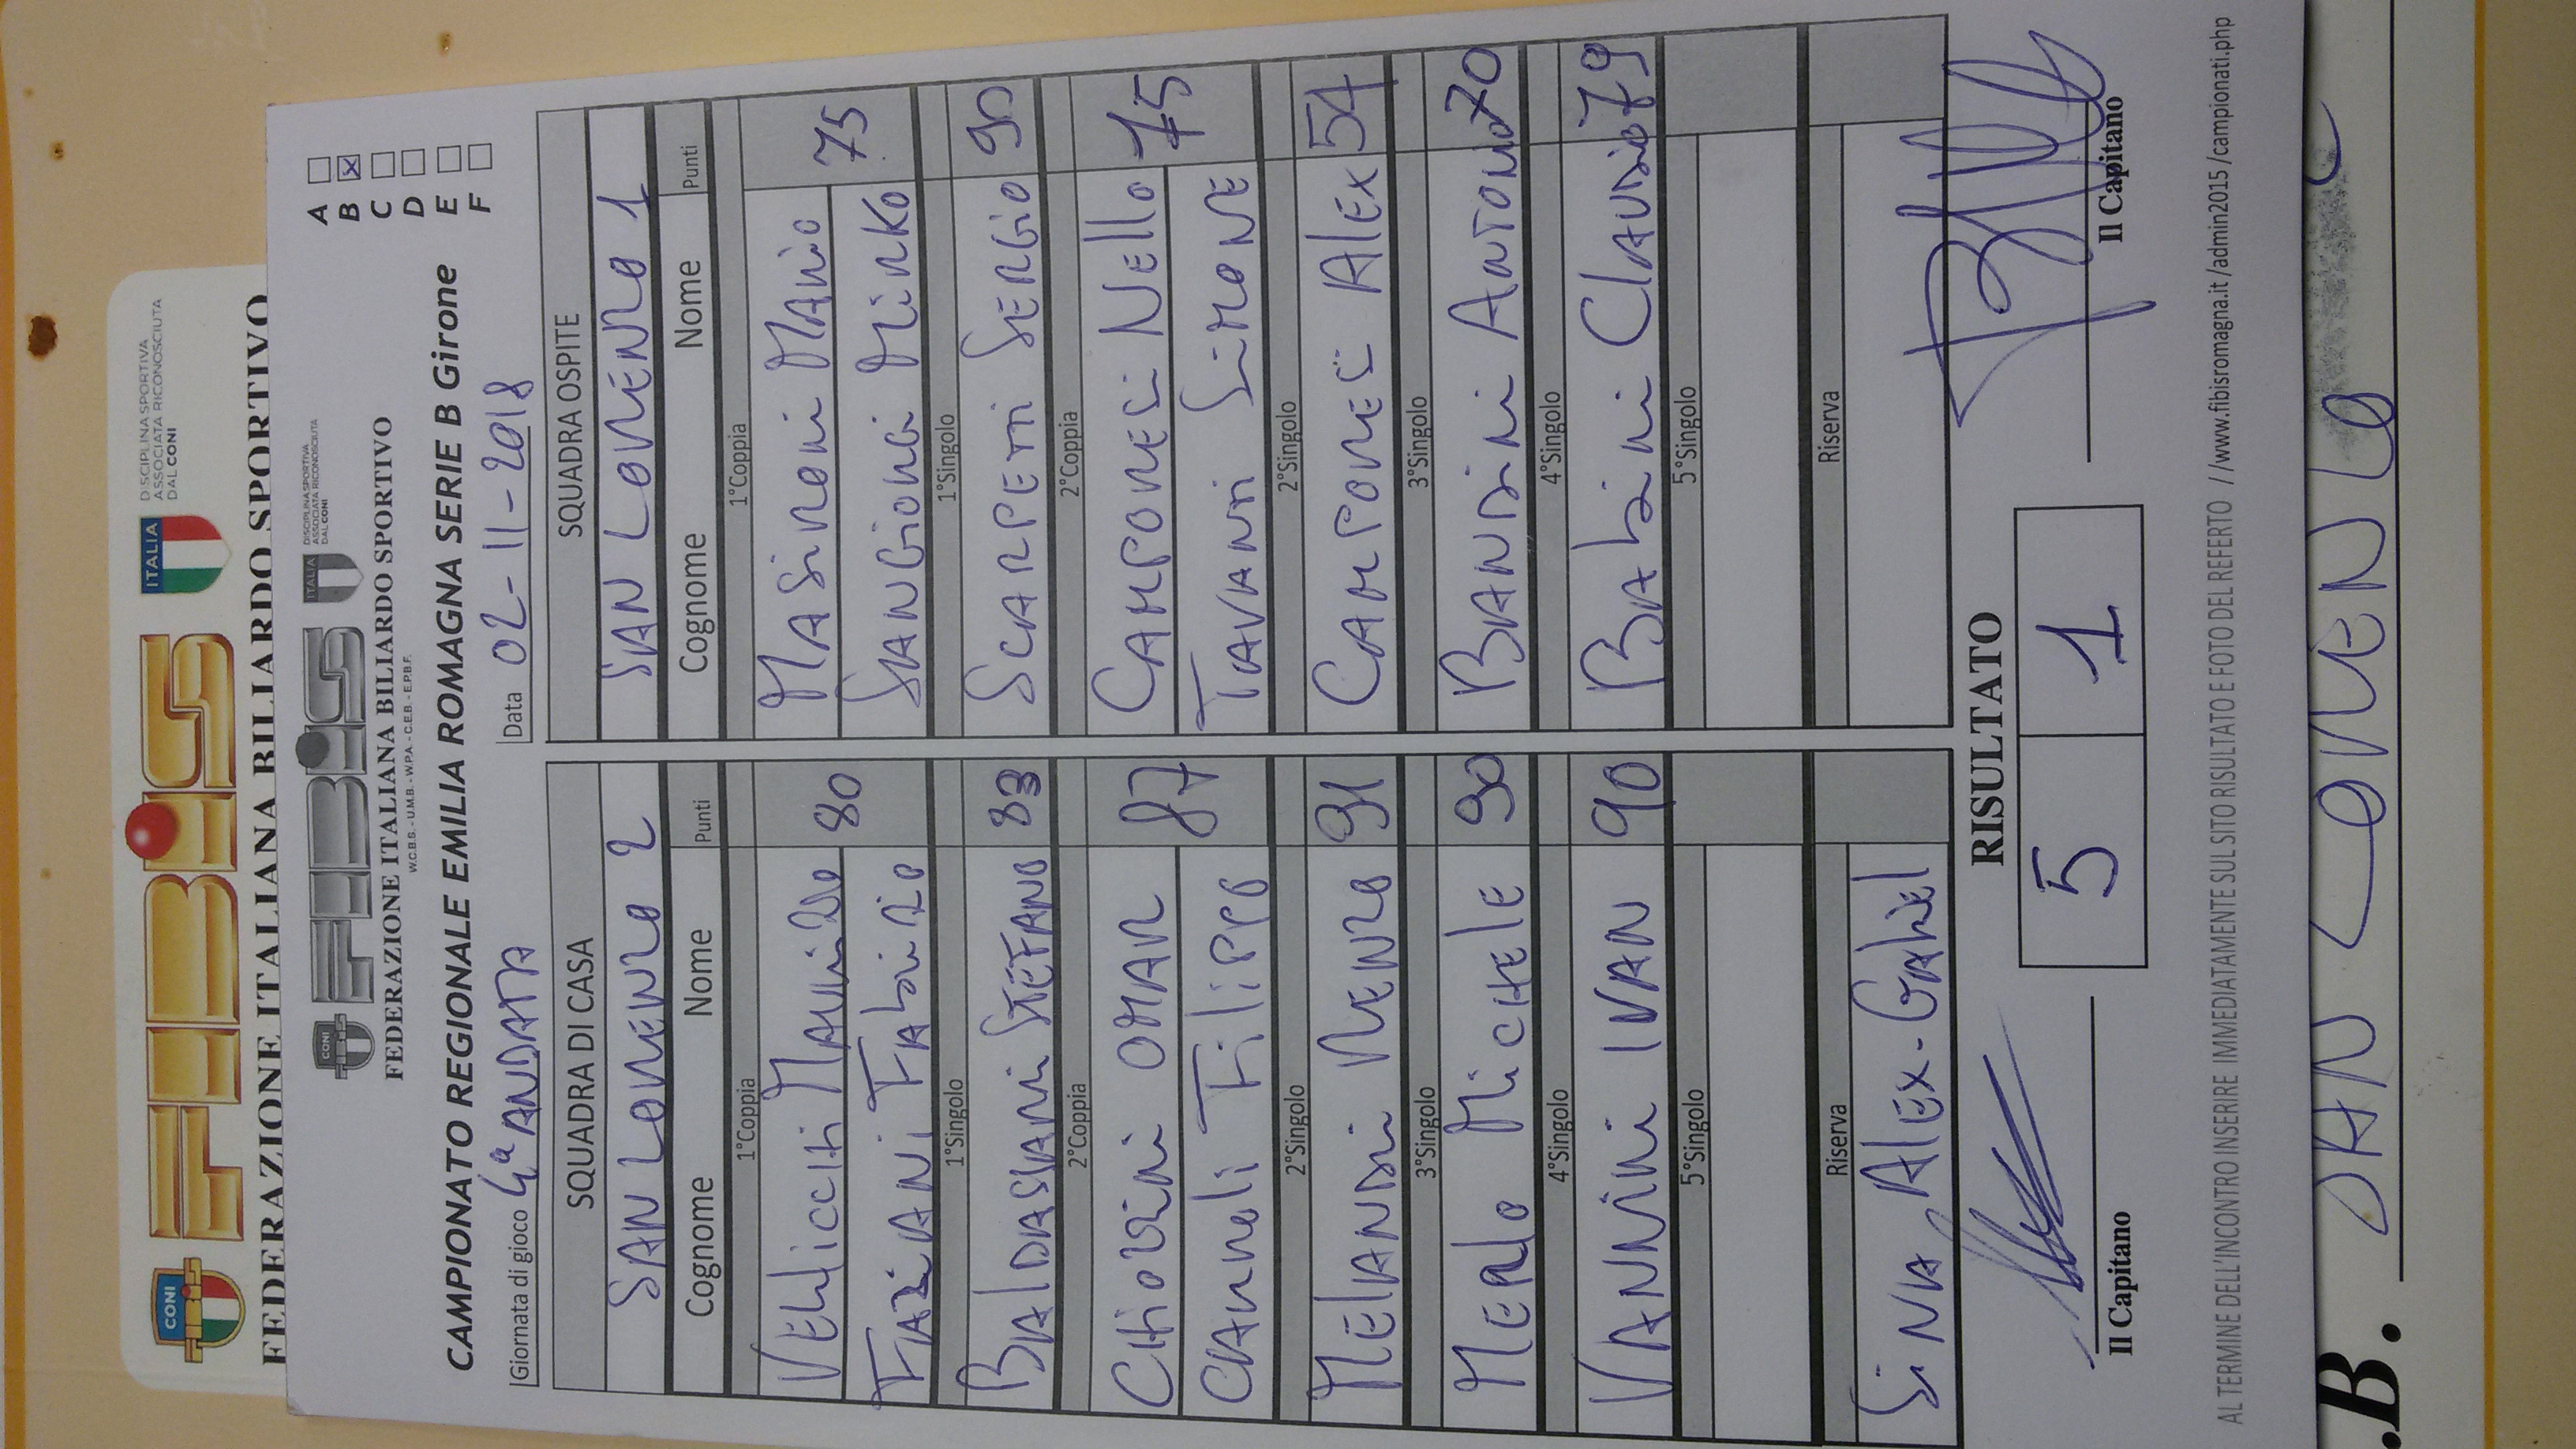 CONI
FIBIS
ITALIA
DISCIPLINA SPORTIVA
ASSOCIATA RICONOSCIUTA
DAL CONI
FEDERAZIONE ITALIANA BILIARDO SPORTIVO
CONI
FIBIS
ITALIA
DISCIPLINA SPORTIVA
ASSOCIATA RICONOSCIUTA
DAL CONI
FEDERAZIONE ITALIANA BILIARDO SPORTIVO
W.C.B.S. - U.M.B. - W.P.A. - C.E.B. - E.P.B.F.
CAMPIONATO REGIONALE EMILIA ROMAGNA SERIE B Girone
A
B X
C
D
E
F
Giornata di gioco 4ª ANDATA Data 02-11-2018
SQUADRA DI CASA SQUADRA OSPITE
SAN LORENZO 2 SAN LORENZO 1
Cognome Nome Punti Cognome Nome Punti
1°Coppia 1°Coppia
VERLICCHI MAURIZIO 80 MASIRONI MARIO 75
FAZIANI FABRIZIO SANGIORGI MIRKO
1°Singolo 1°Singolo
BALDASSARRI STEFANO 83 SCARPETTI SERGIO 90
2°Coppia 2°Coppia
CHIORINI OMAR 87 CAMPORESI NELLO 75
CARNOLI FILIPPO TAVANTI SIMONE
2°Singolo 2°Singolo
MELANDRI RENZO 91 CAMPORESI ALEX 54
3°Singolo 3°Singolo
MERLO MICHELE 90 BANDINI ANTONIO 70
4°Singolo 4°Singolo
VANNINI IVAN 90 BABINI CLAUDIO 79
5°Singolo 5°Singolo
Riserva Riserva
SIRNA ALEX-GABRIEL
RISULTATO
5 1
Il Capitano Il Capitano
AL TERMINE DELL'INCONTRO INSERIRE IMMEDIATAMENTE SUL SITO RISULTATO E FOTO DEL REFERTO //www.fibisromagna.it /admin2015 /campionati.php
.B. SAN LORENZO